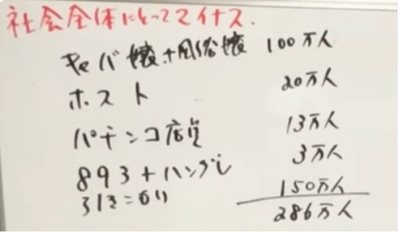 社会全体にとってマイナス.
キャバ嬢+風俗嬢 100万人
ホスト 20万人
パチンコ店員 13万人
893+ハングレ 3万人
150万人
286万人